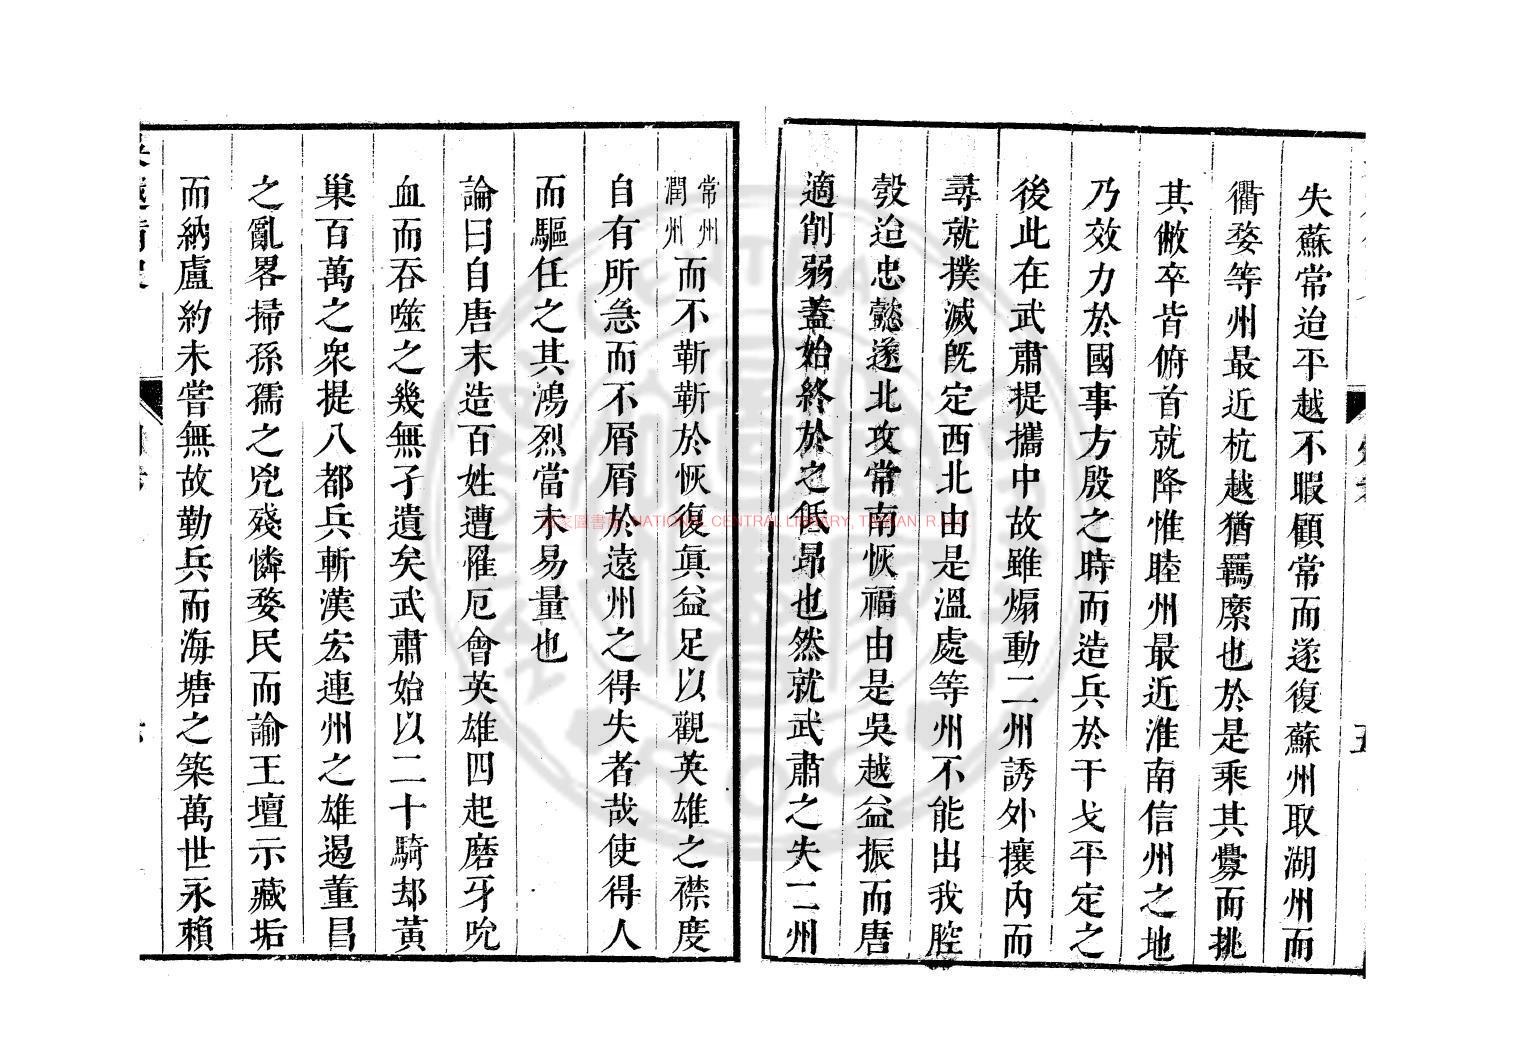 失蘇常迨平越不暇顧常而遂復蘇州取湖州而
衢婺等州最近杭越猶羈縻也於是乘其釁而挑
其敝卒皆俯首就降惟睦州最近淮南信州之地
乃效力於國事方殷之時而造兵於干戈平定之
後此在武肅提攜中故雖煽動二州誘外攘內而
尋就撲滅旣定西北由是溫處等州不能出我腔
彀迨忠懿遂北攻常南恢福由是吳越益振而唐
適削弱蓋始終於之低昻也然就武肅之失二州
常州潤州而不靳靳於恢復眞益足以觀英雄之襟度
自有所急而不屑屑於遠州之得失者哉使得人
而驅任之其鴻烈當未易量也
論曰自唐末造百姓遭罹厄會英雄四起磨牙吮
血而吞噬之幾無孑遺矣武肅始以二十騎却黃
巢百萬之衆提八都兵斬漢宏連州之雄遏董昌
之亂畧掃孫孺之兇殘憐婺民而諭王壇示藏垢
而納盧約未嘗無故勤兵而海塘之築萬世永賴
國家圖書館 NATIONAL CENTRAL LIBRARY, TAIWAN R.O.C.